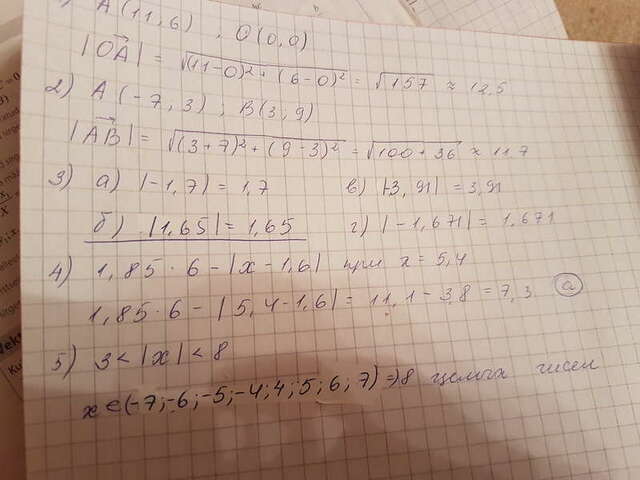 A (11,6) , O(0,0)
|OA| = √(11-0)²+(6-0)² = √157 ≈ 12,5
2) A (-7,3) ; B(3,9)
|AB| = √(3+7)²+(9-3)² = √100+36 ≈ 11.7
3) а) |-1,7| = 1,7 в) |-3,91| = 3,91
б) |1,65| = 1,65 г) |-1,671| = 1,671
4) 1,85·6-|x-1,6| при x = 5,4
1,85·6-|5,4-1,6| = 11,1-3,8 = 7,3 а
5) 3<|x|<8
x∈(-7;-6;-5;-4;4;5;6;7)⇒8 целых чисел